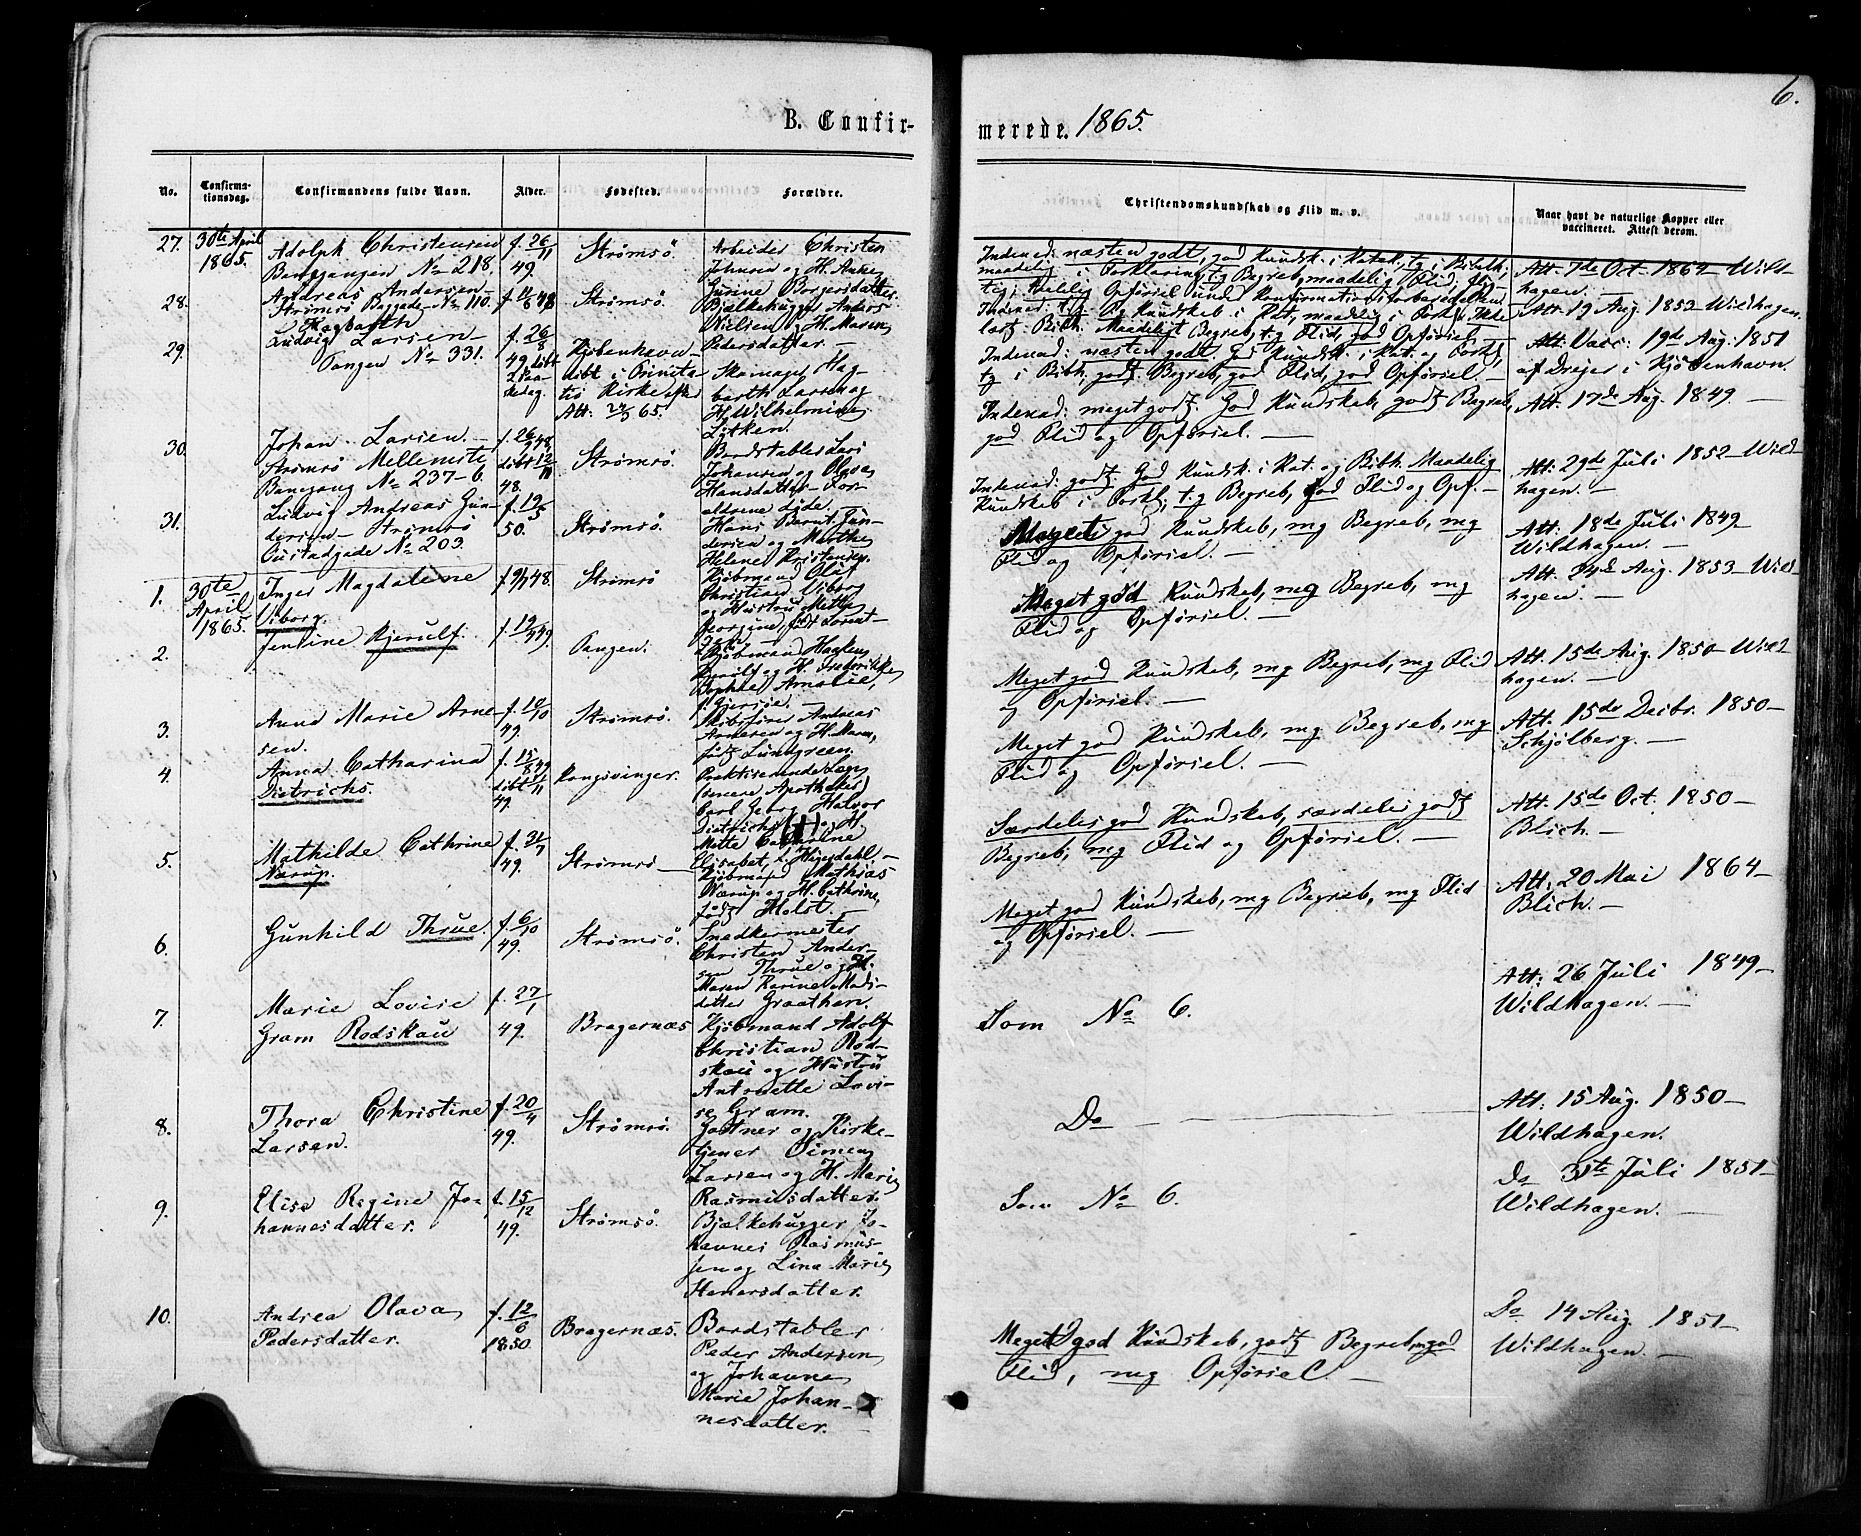 6.
B. Confir-
merede. 1865.
No.
Confirma-
tionsdag.
Confirmandens fulde Navn.
Alder.
Fødested.
Forældre.
Christendomskundskab og Flid m. v.
Naar havt de naturlige Kopper eller
vaccineret. Attest derom.
27.
30te April
1865.
Adolph Christensen
No 218.
f. 26/11
49.
Strømsø.
Arbeider Christen
Johnsen og H. Anne
Gurine Borgersdatter.
Indenad: næsten godt, god Kundsk. i Katek., tg i Bibelh.
maadelig i Forklaring, tg Begreb, maadelig Flid,
Opførsel under Konfirmationsforberedelsen
Att. 7de Oct. 1862 Wild
hagen.
28.
Andreas Andersen
Strømsø No 110.
f. 11/8 48
Strømsø.
Bjælkehugger Anders
Nielsen og H. Maren
Pedersdatter.
Indenad: tg Kundskab i Kat, maadelig i Forkl. Ikke
læst Bibh. Maadeligt Begreb, tg Flid, god Opførsel
Att. 19 Aug. 1853 Wildhagen.
29.
Hagbarth
Ludvig Larsen
Tangen No 331.
f. 26/8
49 døbt
Kjøbenhavn
døbt i Trinita
tis Kirke
Att: 65.
Skomager Hag-
barth Larsen og
H. Wilhelmine
Lytken.
Indenad: næsten godt. God Kundsk. i Kat. og Forkl,
tg i Bibh, godt Begreb, god Flid, god Opførsel
Att. Vacc. 19de Aug. 1851
af Drejer i Kjøbenhavn.
30.
Johan Larsen.
Strømsø Mellemste
Banegang No 237-6.
f. 26/9 48,
døbt 12/11
48.
Strømsø.
Bordstabler Lars
Johansen og Olava
Hansdatter
Indenad: meget godt. God Kundskab, godt Begreb,
god Flid og Opførsel.
Att. 17de Aug. 1849
31.
Ludvig Andreas Gun-
dersen Strømsø
No 203.
f. 19/3
50.
Strømsø.
Hans Bernt Gun-
dersen og Marthe
Helene Kristensen.
Indenad: godt. God Kundsk. i Kat. og Bibh. Maadelig
Kundskab i Forkl; tg Begreb, god Flid og Opf.
Att. 29de Juli 1852 Wild
hagen.
1.
30te
April
1865.
Inger Magdalene
Viborg.
f. 9/7 48.
Strømsø
Kjøbmand Oluf
Christian Viborg
og Hustru Mette
Georgine, født Lorent-
zen.
Meget god Kundskab, mg Begreb, mg
Flid og Opførsel.
Att. 18de Juli 1849
Wildhagen.
2.
Jentine Kjerulf.
f. 19/9 49.
Tangen.
Kjøbmand Haagen
Kjerulf og H. Frederikke
Sophie Amalie,
Meget god Kundskab, mg Begreb, mg
Flid og Opførsel.
Att. 24de Aug. 1853 Wild
hagen.
3.
Anna Marie Arne
sen.
f. 10/10
49.
Strømsø.
Skibsfører Andreas
Arnesen og H. Maren,
født Lundgreen.
Meget god Kundskab, mg Begreb, mg Flid
og Opførsel.
Att. 15de Aug. 1850 Wild
hagen.
4.
Anna Catharina
Dietrichs.
f. 15/8 49
døbt
49.
Kongsvinger.
Praktiserende Læge
(senere Apotheker)
Carl Georg Halvor
Dietrichs (†) og H.
Mette Catharine
Elisabet,
Meget god Kundskab, mg Begreb, mg
Flid og Opførsel.
Att. 15de Decbr. 1850
Schjølberg.
5.
Mathilde Cathrine
Nærup.
f. 31/7
49.
Strømsø
Kjøbmand Mathias
Nærup og H. Cathrine,
født Holst.
Særdeles god Kundskab, særdeles godt
Begreb, mg Flid og Opførsel.
Att. 15de Oct. 1850
Blich.
6.
Gunhild Thrue.
f. 6/10
49.
Strømsø.
Snedkermester
Christen Ander-
sen Thrue og H.
Maren Karine Mads-
datter Graathen.
Meget god Kundskab, mg Begreb, mg Flid
og Opførsel.
Att: 20 Mai 1864
Blich.
7.
Marie Lovise
Gram Rodskau
f. 27/1
49.
Bragernæs
Kjøbmand Adolf
Christian Rod-
skau og Hustru
Antonette Lovi-
se Gram.
Som No 6.
Att: 26 Juli 1849
Wildhagen.
8.
Thora Christine
Larsen.
f. 20/4
49.
Strømsø.
Gartner og Kirke-
tjener Simen
Larsen og H. Marie
Rasmusdatter.
Do
Att: 15 Aug. 1850
Wildhagen.
9.
Elise Regine Jo-
hannesdatter.
f. 15/12
49.
Strømsø.
Bjælkehugger Jo-
hannes Rasmus-
sen og Lina Marie
Stenersdatter.
Som No 6.
Do 31te Juli 1851
Wildhagen.
10.
Andrea Olava
Pedersdatter.
f. 12/6
1850.
Bragernæs.
Bordstabler
Peder Andersen
og Johanne
Marie Johan-
nesdatter.
Meget god Kundskab, godt Begreb, mgod
Flid, mg Opførsel.
Do 14 Aug 1851
Wildhagen.